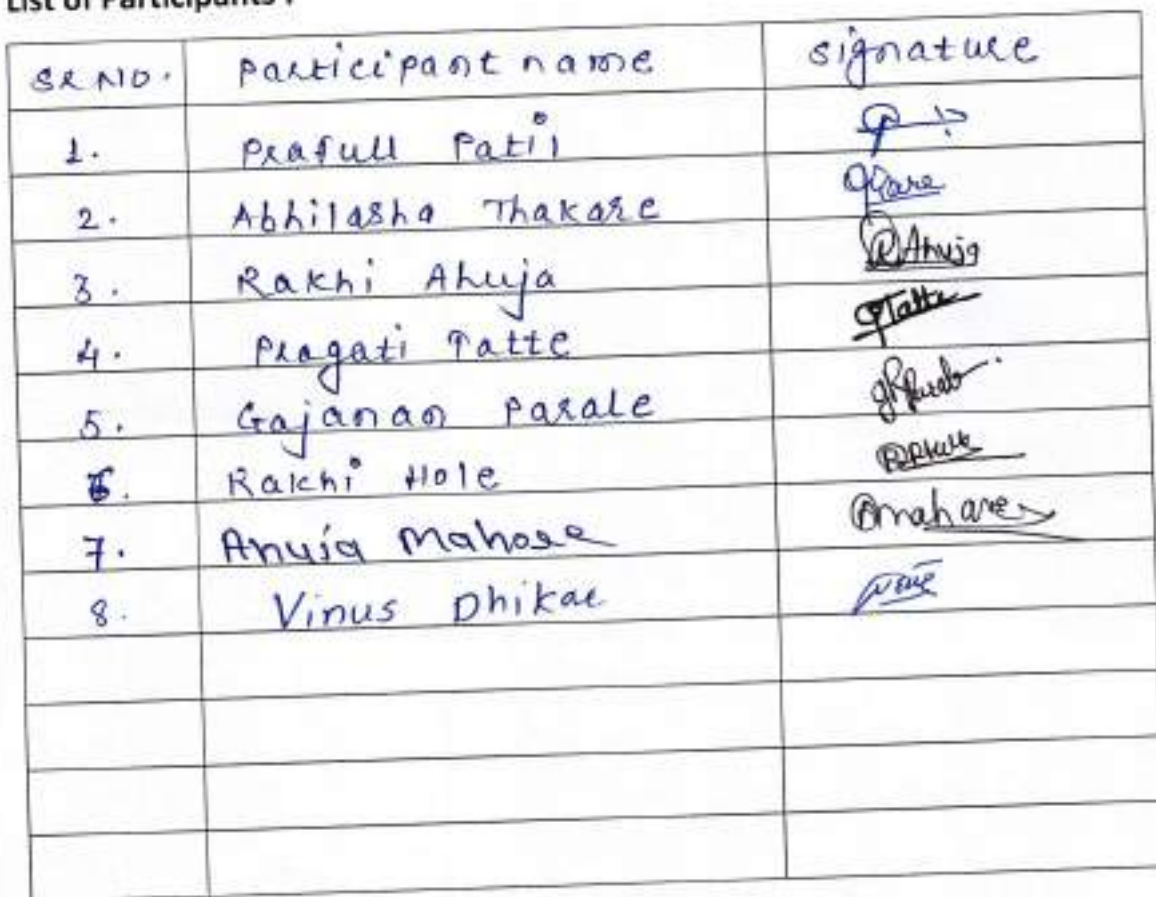 List of Participants :
SR NO. Participant name signature
1. Prafull Patil
2. Abhilasha Thakare
3. Rakhi Ahuja RAhuja
4. Pragati Tatte PTatte
5. Gajanan Parale
6. Rakhi Hole
7. Anuja Mahore
8. Vinus Dhikar